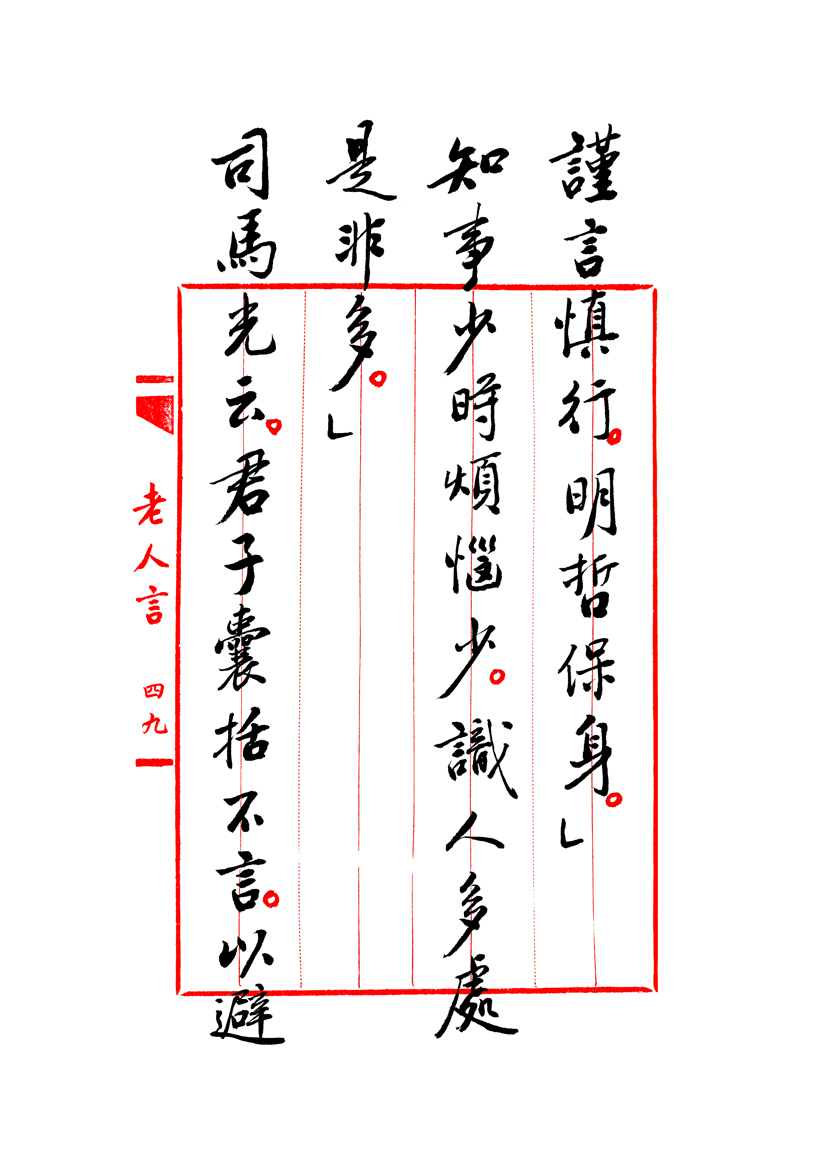 謹言慎行。明哲保身。」
知事少時煩惱少。識人多處
是非多。」
司馬光云。君子囊括不言。以避
老人言 四九